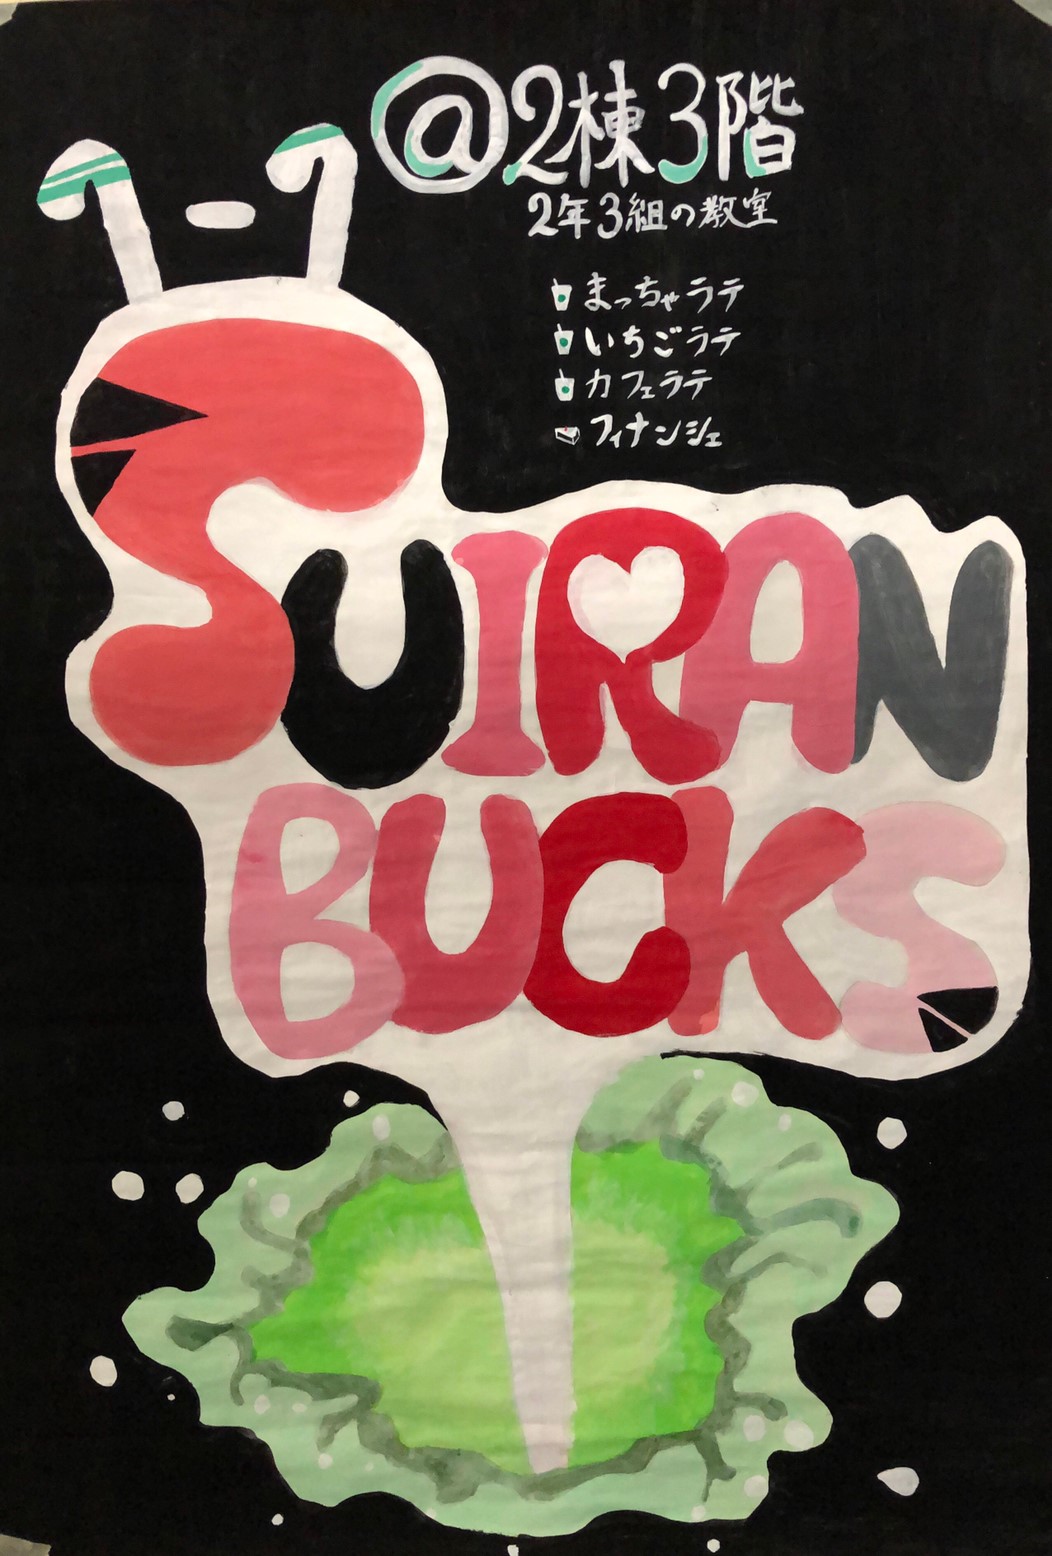 @2棟3階
2年3組の教室
まっちゃラテ
いちごラテ
カフェラテ
フィナンシェ
SUIRAN
BUCKS